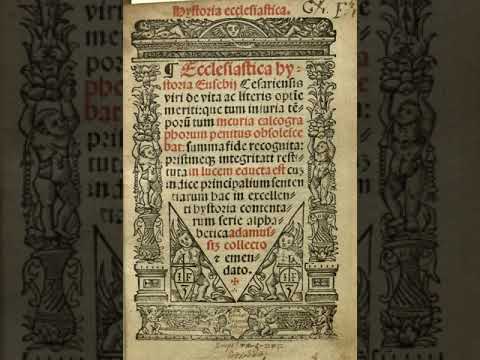 Hystoria ecclesiastica.
¶ Ecclesiastica hy-
storia Eusebij Cesariensis
viri de vita ac literis optīe
meriti: que tum iniuria tē-
porū tum incuria calcogra
phorum penitus obsolesce
bat: summa fide recognita:
pristineqʒ integritati resti-
tuta in lucem educta est cuʒ
indice principalium senten
tiarum hac in excellen
ti hystoria contenta-
rum serie alpha-
betica adamus-
sīʒ collecto
⁊ emen-
dato.